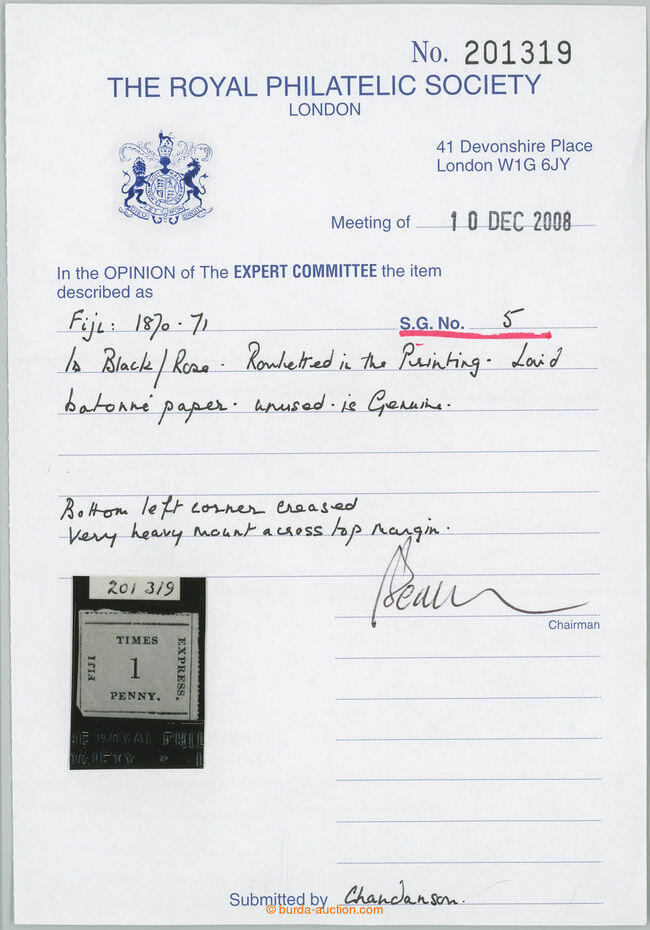 No. 201319
THE ROYAL PHILATELIC SOCIETY
LONDON
41 Devonshire Place
London W1G 6JY
Meeting of 10 DEC 2008
In the OPINION of The EXPERT COMMITTEE the item
described as
Fiji: 1870-71 S.G. No. 5
1d Black/Rose. Rouletted in the Printing. Laid
batonné paper. unused. is Genuine.
Bottom left corner creased
Very heavy mount across top margin.
Chairman
201 319
TIMES
FIJI 1 EXPRESS.
PENNY.
HE ROYAL PHIL
OCIETY L
Submitted by Chandanson.
© burda-auction.com